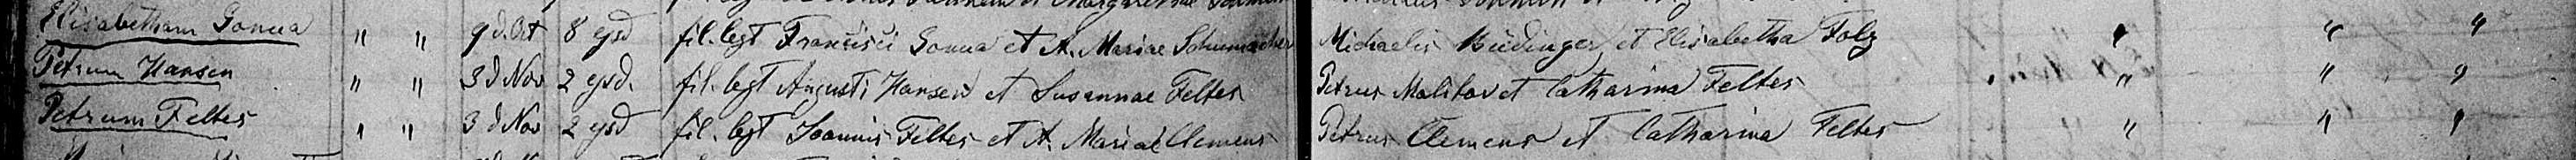 Elisabetham Gonna " " 9 d. Oct 8 ejsd fil. legt Francisci Gonna et A. Mariae Schumacher Michaelis Büdinger et Elisabetha Folz " " "
Petrum Hansen " " 3 d Nov 2 ejsd. fil. legt Augusti Hansen et Susannae Feltes Petrus Malitor et Catharina Feltes " " "
Petrum Feltes " " 3 d Nov 2 ejsd fil. legt Joannis Feltes et A. Mariae Clemens Petrus Clemens et Catharina Feltes " " "